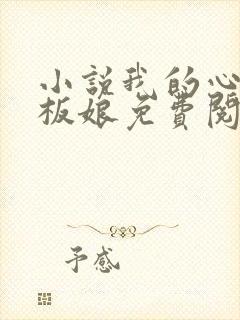 小説我的心
板娘免費閱
予感